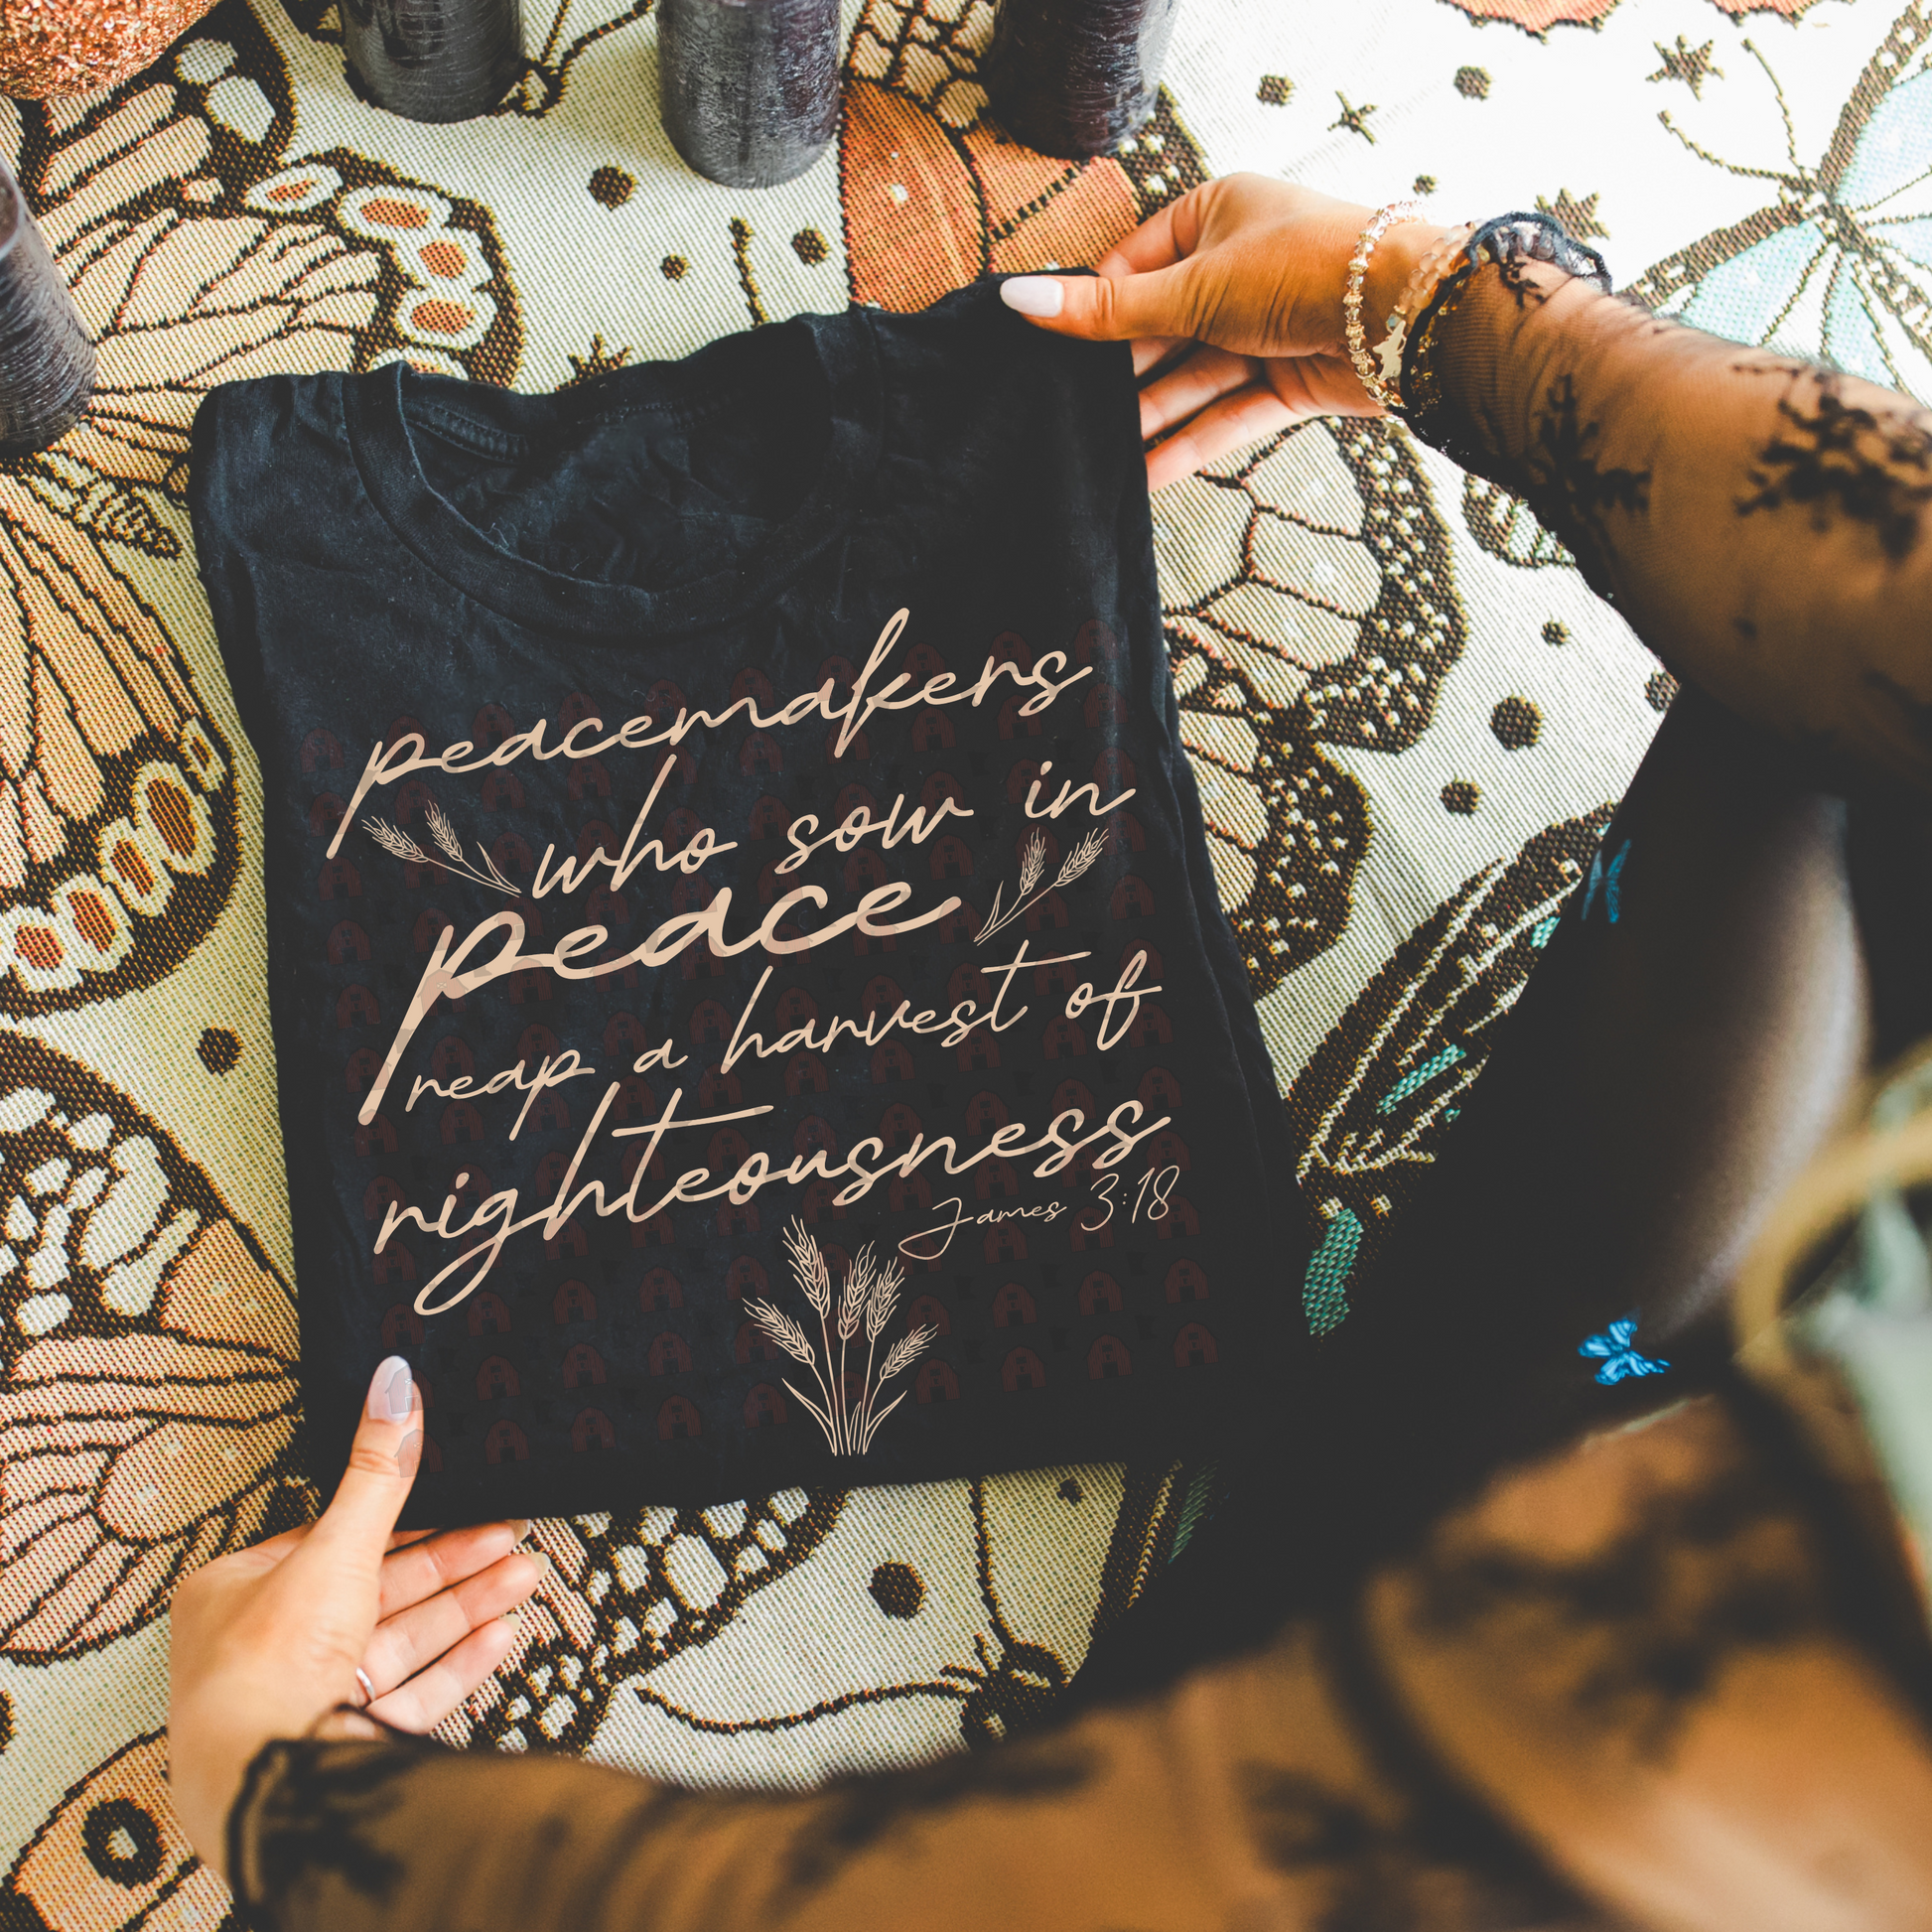 peacemakers
who sow in
peace
reap a harvest of
righteousness
James 3:18